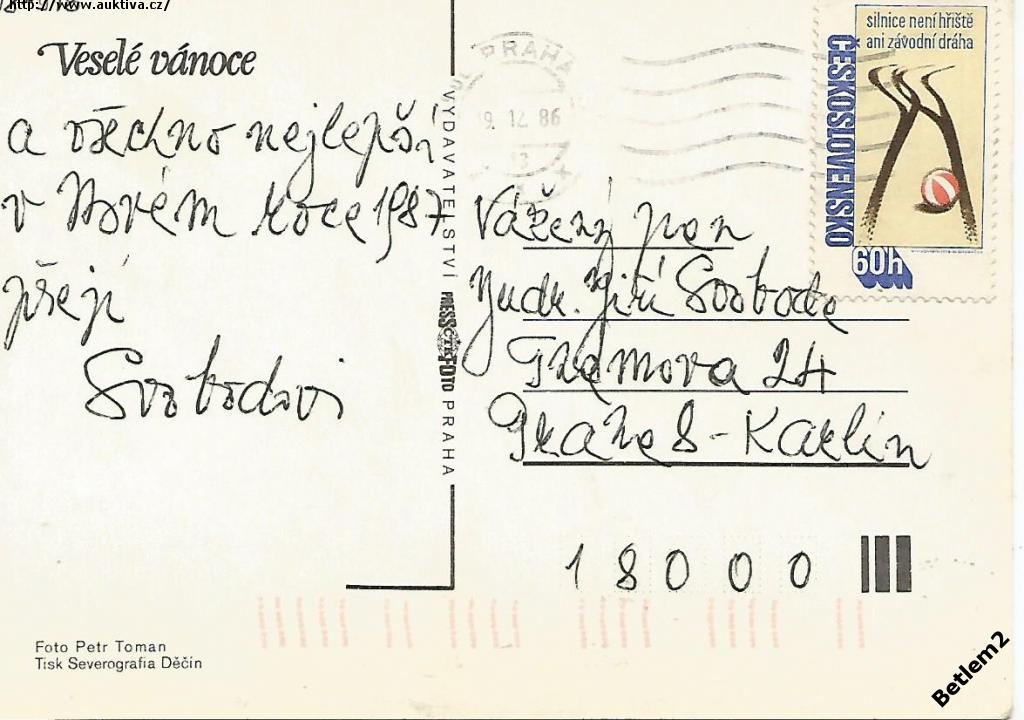 http://www.auktiva.cz/
Veselé vánoce
a všechno nejlepší
v Novém roce 1987
přejí
Svobodovi
VYDAVATELSTVÍ PRESSFOTO PRAHA
ČTK
PRAHA
9. 12. 86
13
silnice není hřiště
ani závodní dráha
ČESKOSLOVENSKO
60h
Vážený pan
Judr. Jiří Svoboda
Praha 8 - Karlín
18000
Foto Petr Toman
Tisk Severografia Děčín
Betlem2